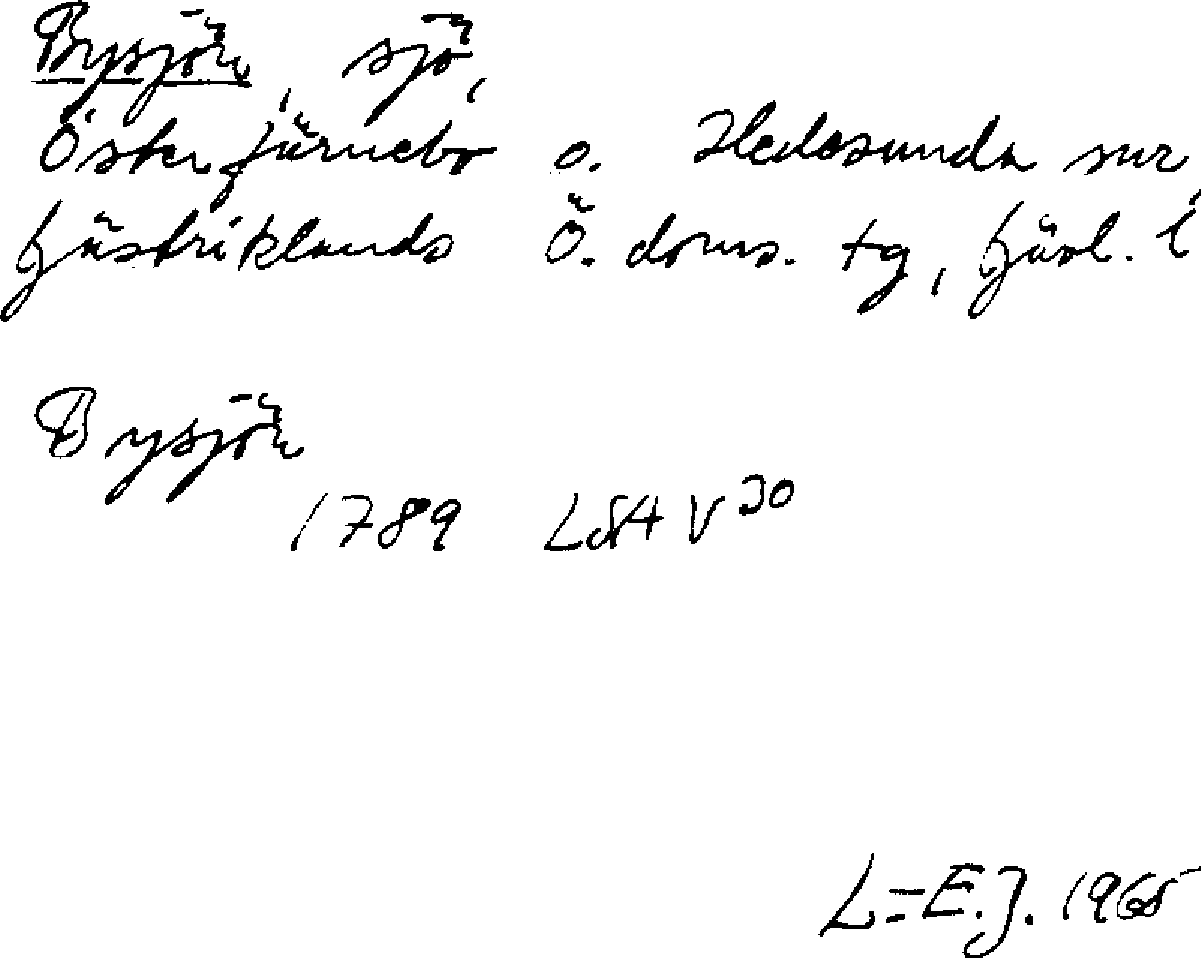 Bysjön, sjö,
Österfärnebo o. Hedesunda snr,
Gästriklands Ö. doms. tg, Gävl. l
Bysjön
1789 LSA V 30
L-E.J. 1965